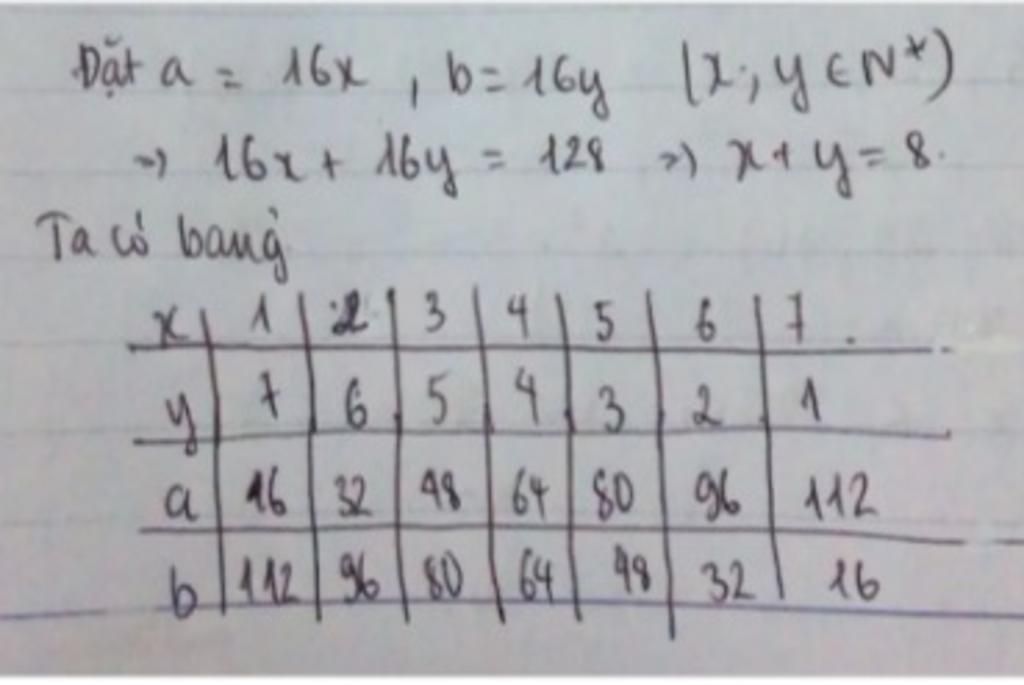 Đặt a = 16x , b = 16y (x; y ∈ N*)
=> 16x + 16y = 128 => x + y = 8.
Ta có bảng
x 1 2 3 4 5 6 7 .
y 7 6 5 4 3 2 1
a 16 32 48 64 80 96 112
b 112 96 80 64 48 32 16